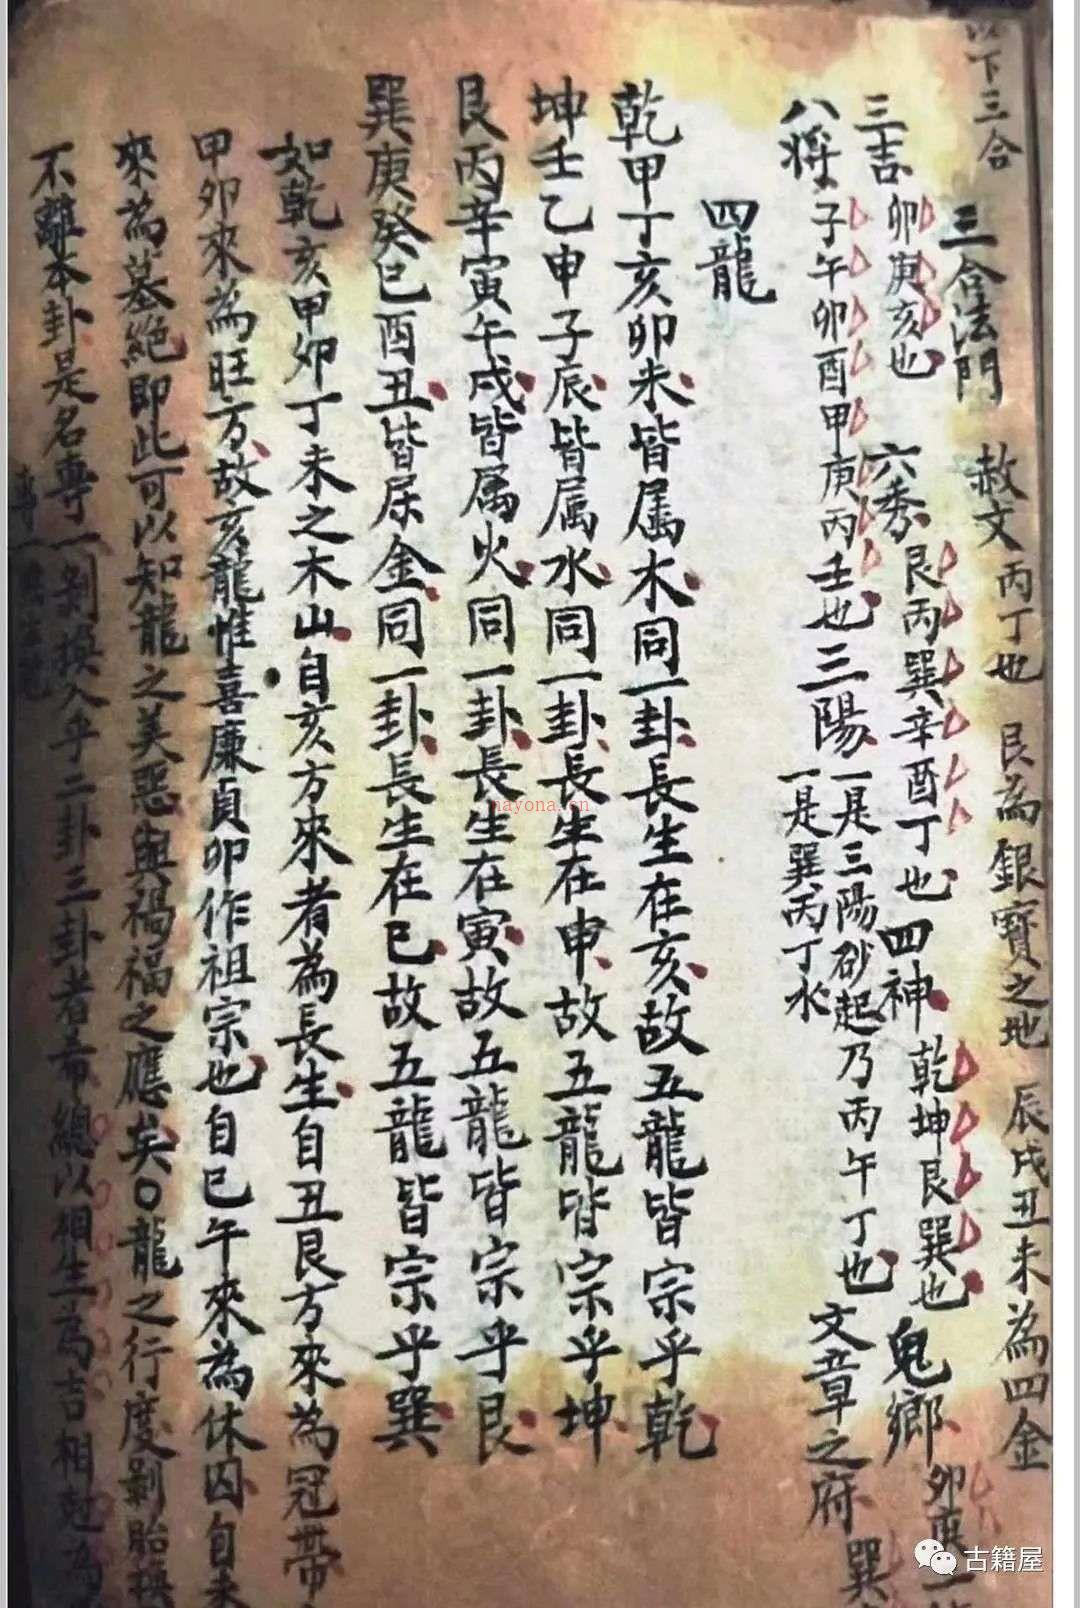 以下三合
三合法門　赦文丙丁也　艮為銀寶之地　辰戌丑未為四金
三吉卯庚亥也　六秀艮丙巽辛酉丁也　四神乾坤艮巽也　鬼鄉卯庚
八將子午卯酉甲庚丙壬也　三陽一是三陽砂起乃丙午丁也　文章之府巽
一是巽丙丁水
四龍
乾甲丁亥卯未皆属木同一卦長生在亥故五龍皆宗乎乾
坤壬乙申子辰皆属水同一卦長生在申故五龍皆宗乎坤
艮丙辛寅午戌皆属火同一卦長生在寅故五龍皆宗乎艮
巽庚癸巳酉丑皆属金同一卦長生在巳故五龍皆宗乎巽
如乾亥甲卯丁未之木山自亥方來者為長生自丑艮方來為冠帶
甲卯來為旺方故亥龍惟喜廉貞卯作祖宗也自巳午來為休囚自未
來為墓絕即此可以知龍之美惡與禍福之應矣○龍之行度剝胎換
不離本卦是名專一剝換入乎二卦三卦者希總以相生為吉相尅為
專一
nayona.cn
古籍屋